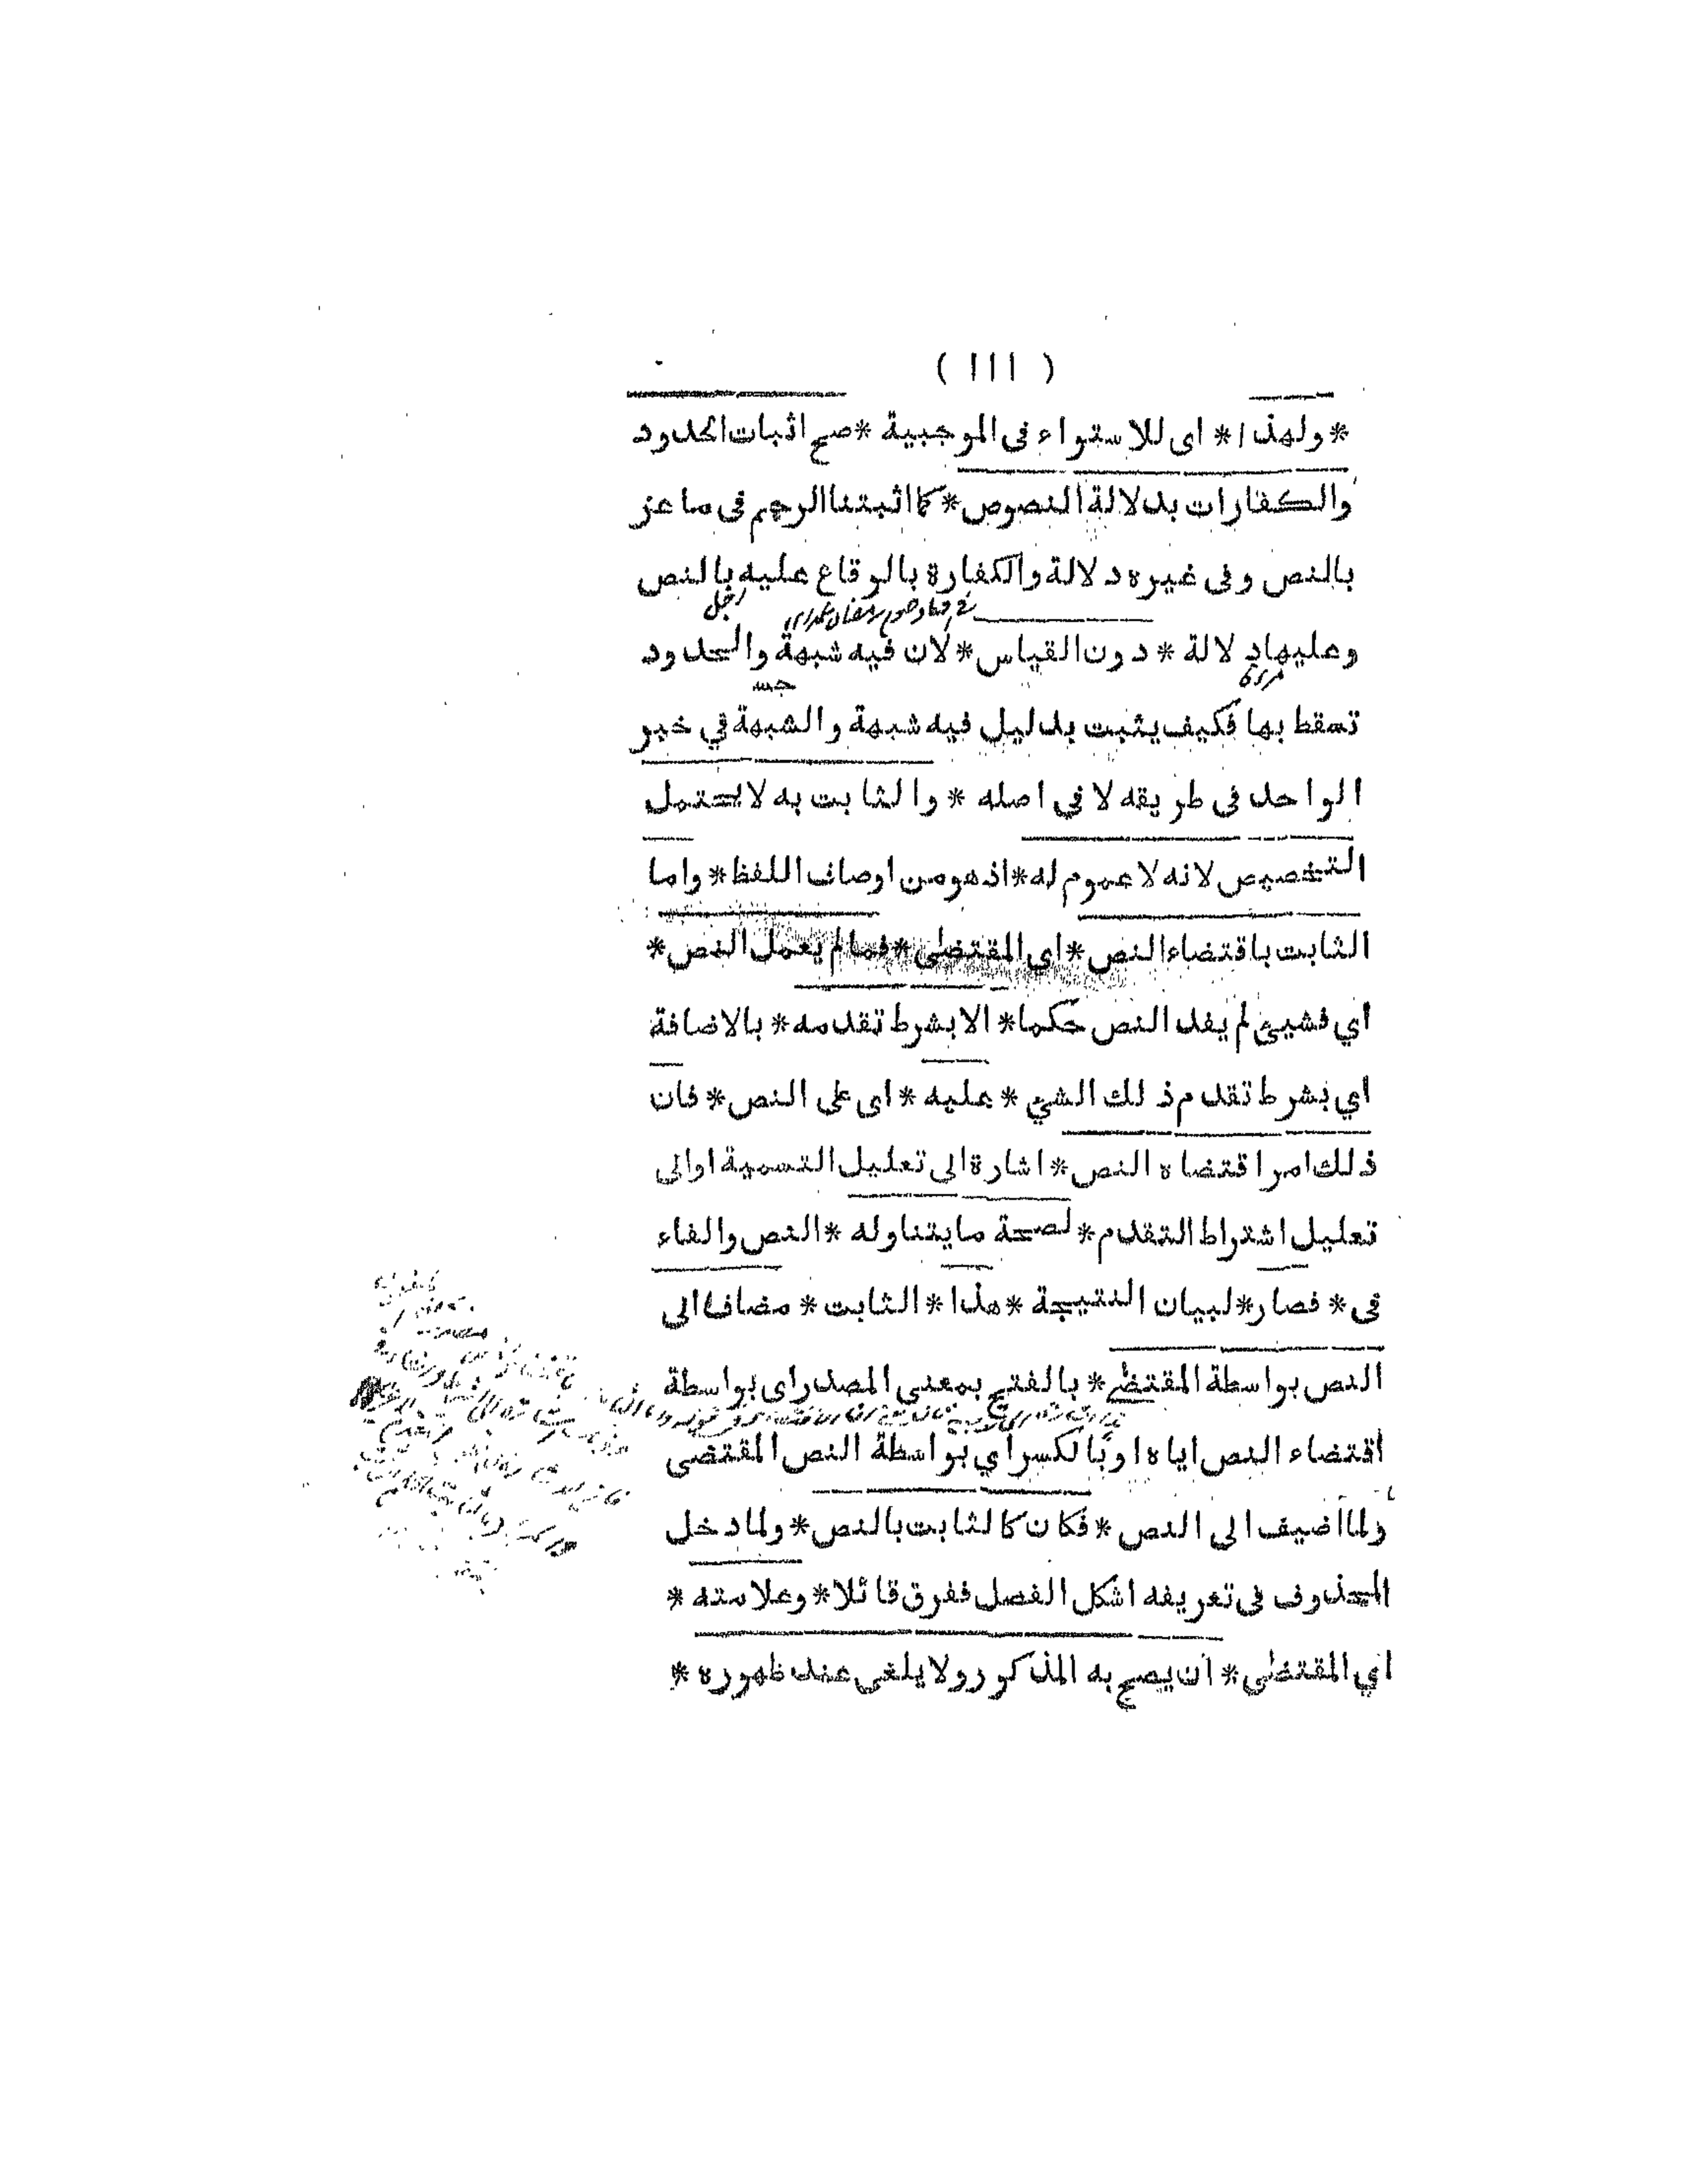 ( ١١١ )
* ولهذا * اى للاستواء فى الموجبية * صح اثبات الحدود
والكفارات بدلالة النصوص * كما اثبتنا الرجم فى ماعز
بالنص وفى غيره دلالة والكفارة بالوقاع عليه بالنص
وعليها دلالة * دون القياس * لان فيه شبهة والحدود
تسقط بها فكيف يثبت بدليل فيه شبهة والشبهة في خبر
الواحد فى طريقه لا في اصله * والثابت به لا يحتمل
التخصيص لانه لا عموم له * اذ هو من اوصاف اللفظ * واما
الثابت باقتضاء النص * اى المقتضى * فما لم يعمل النص *
اي فشيئ لم يفد النص حكما * الا بشرط تقدمه * بالاضافة
اي بشرط تقدم ذلك الشئ * عليه * اى على النص * فان
ذلك امر اقتضاه النص * اشارة الى تعليل التسمية او الى
تعليل اشتراط التقدم * لصحة ما يتناوله * النص والفاء
فى * فصار * لبيان النتيجة * هذا * الثابت * مضافا الى
النص بواسطة المقتضى * بالفتح بمعنى المصدر اى بواسطة
اقتضاء النص اياه او بالكسر اي بواسطة النص المقتضى
ولما اضيف الى النص * فكان كالثابت بالنص * ولما دخل
المحذوف فى تعريفه اشكل الفصل ففرق قائلا * وعلامته *
اي المقتضى * ان يصح به المذكور ولا يلغى عند ظهوره *